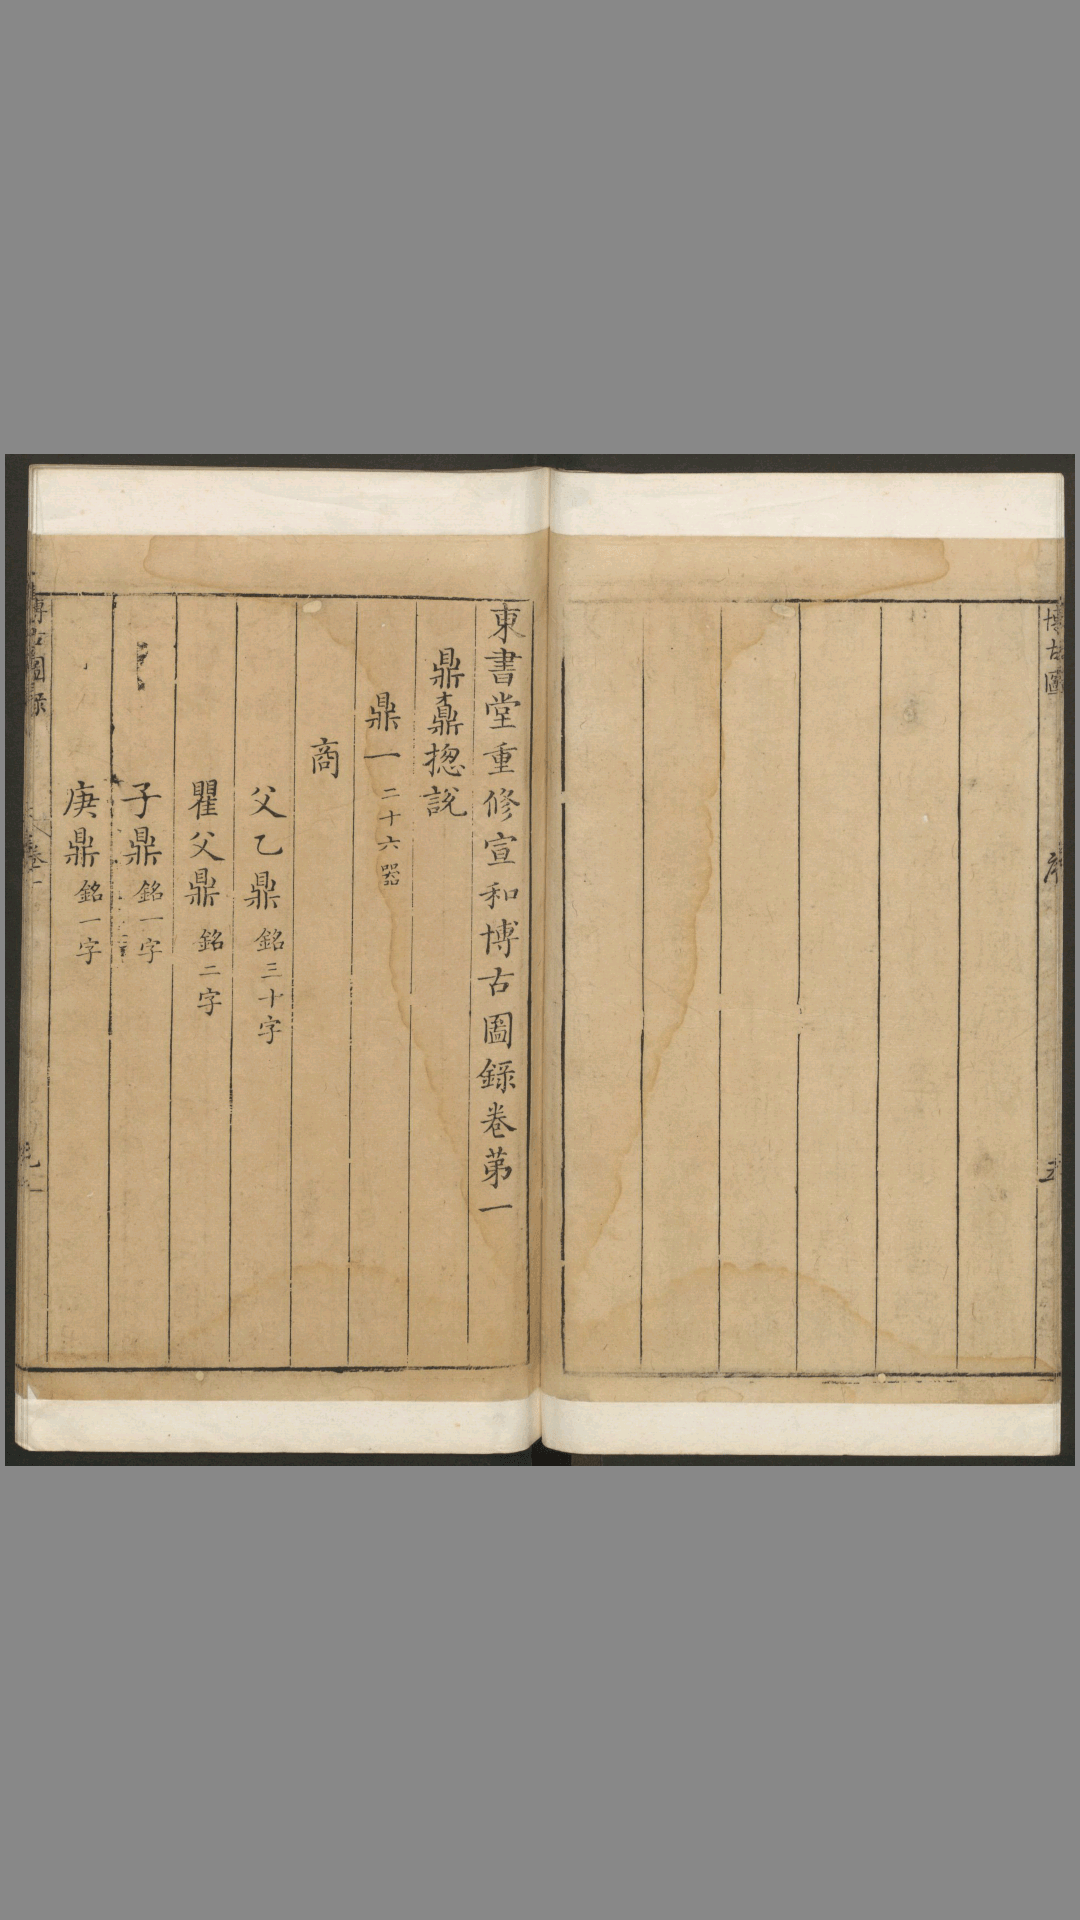 博古圖
序
五
東書堂重修宣和博古圖録卷第一
鼎鼒揔說
鼎一 二十六器
商
父乙鼎 銘三十字
瞿父鼎 銘二字
子鼎 銘一字
庚鼎 銘一字
博古圖録
卷一